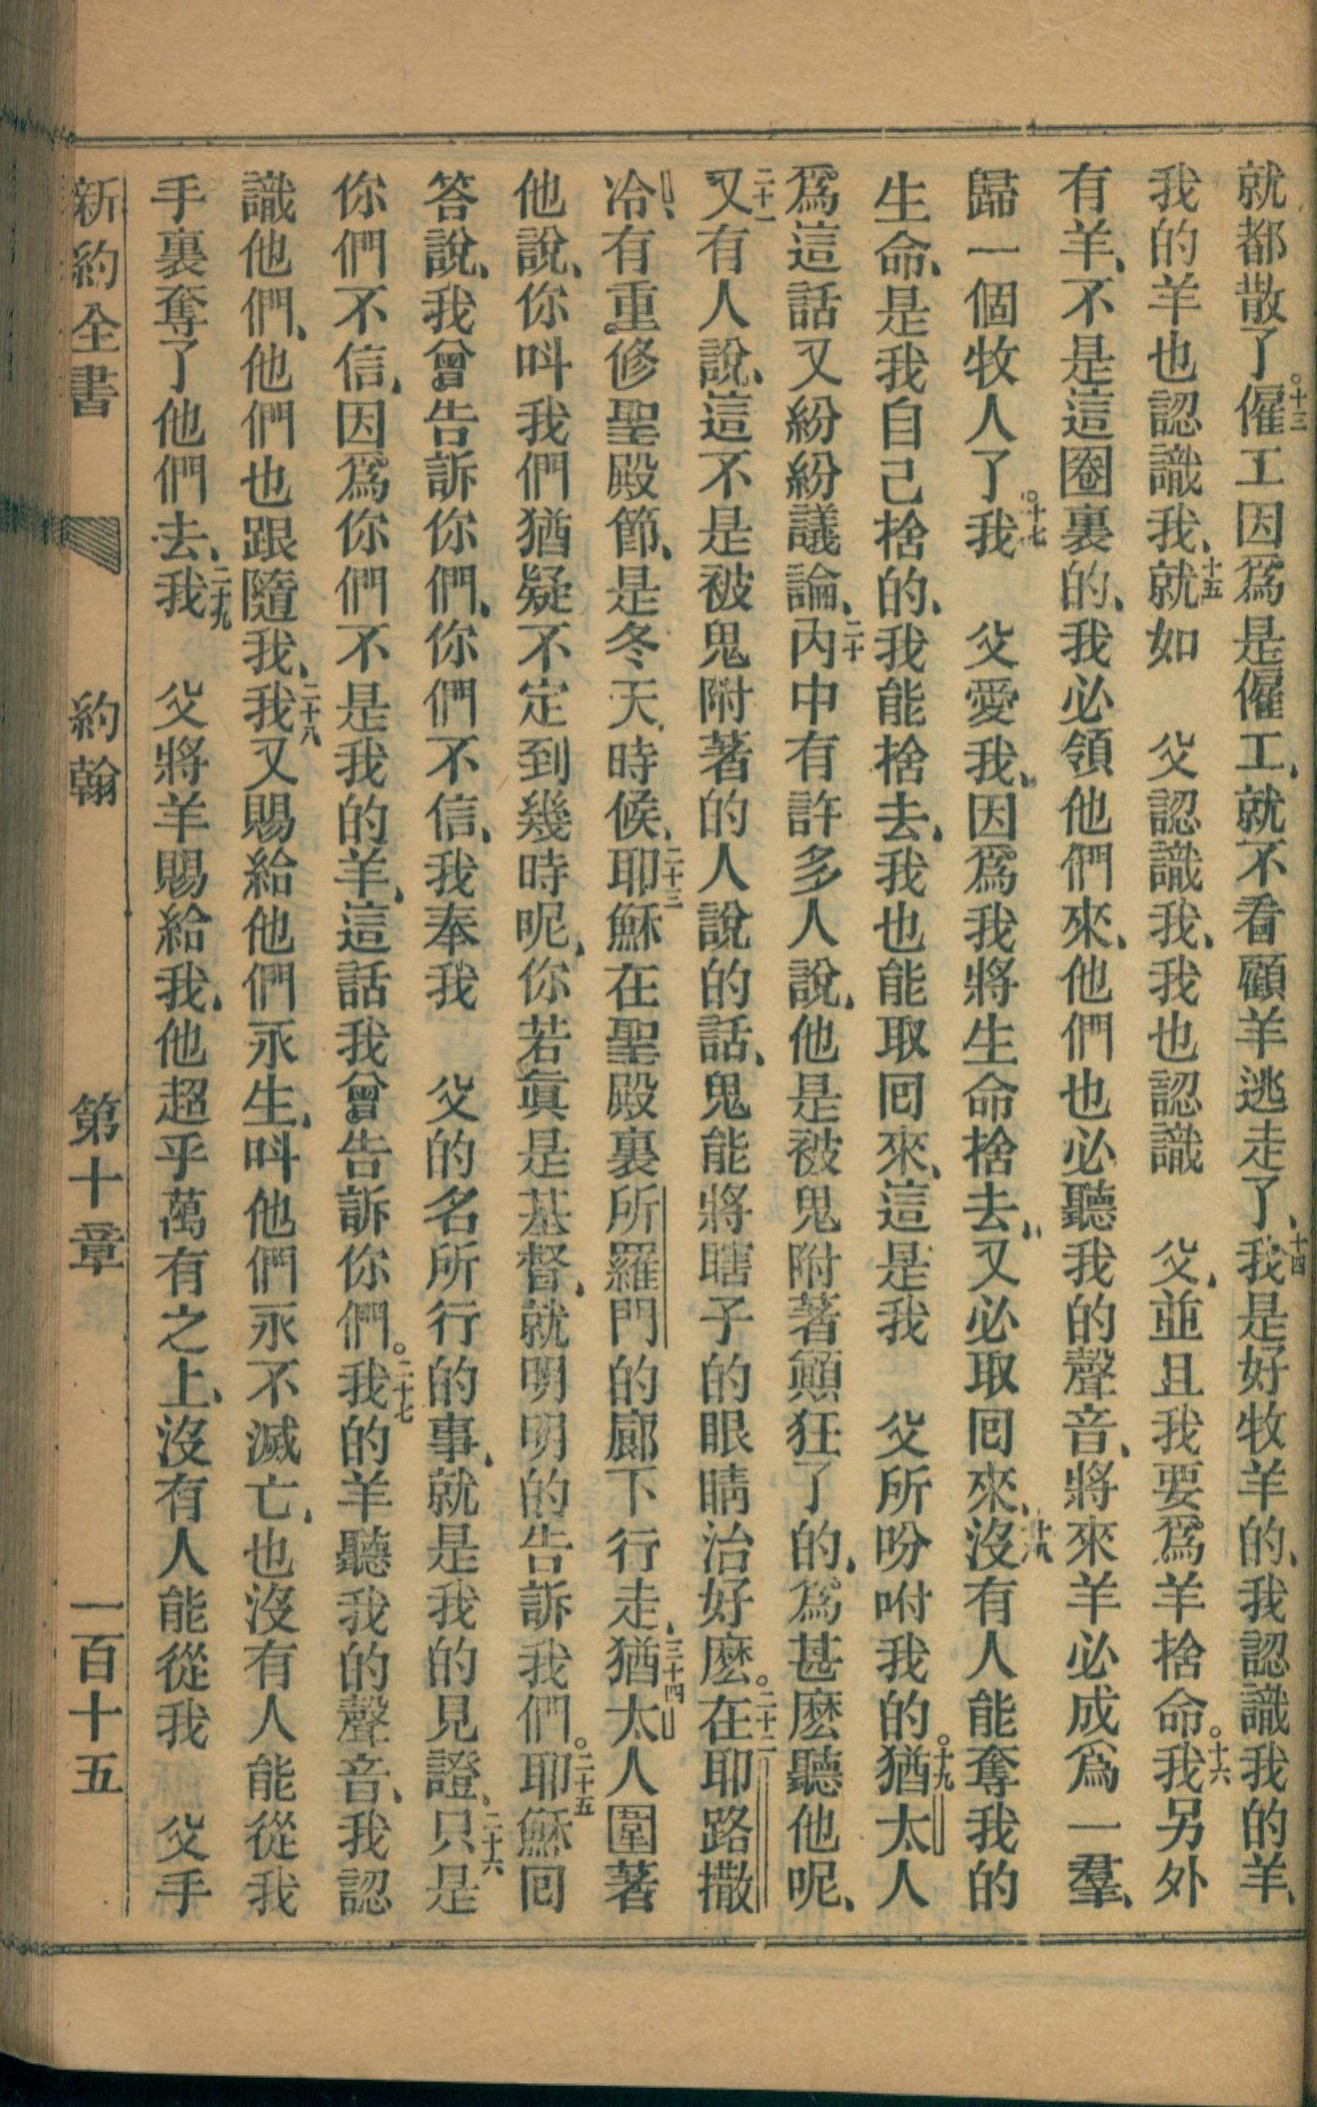 就都散了。十三僱工因爲是僱工、就不看顧羊逃走了、十四我是好牧羊的、我認識我的羊、
我的羊也認識我、十五就如　父認識我、我也認識　父、並且我要爲羊捨命。十六我另外
有羊、不是這圈裏的、我必領他們來、他們也必聽我的聲音、將來羊必成爲一羣、
歸一個牧人了。十七我　父愛我、因爲我將生命捨去、又必取回來、十八沒有人能奪我的
生命、是我自己捨的、我能捨去、我也能取回來、這是我　父所吩咐我的。十九猶太人
爲這話又紛紛議論、二十內中有許多人說、他是被鬼附著顛狂了的、爲甚麽聽他呢、
二十一又有人說、這不是被鬼附著的人說的話、鬼能將瞎子的眼睛治好麽。二十二在耶路撒
冷、有重修聖殿節、是冬天時候、二十三耶穌在聖殿裏所羅門的廊下行走、三十四猶太人圍著
他說、你呌我們猶疑不定到幾時呢、你若眞是基督、就明明的告訴我們。二十五耶穌回
答說、我曾告訴你們、你們不信、我奉我　父的名所行的事、就是我的見證、二十六只是
你們不信、因爲你們不是我的羊、這話我曾告訴你們。二十七我的羊聽我的聲音、我認
識他們、他們也跟隨我、二十八我又賜給他們永生、呌他們永不滅亡、也沒有人能從我
手裏奪了他們去、二十九我　父將羊賜給我、他超乎萬有之上、沒有人能從我　父手
新約全書　約翰　第十章　一百十五